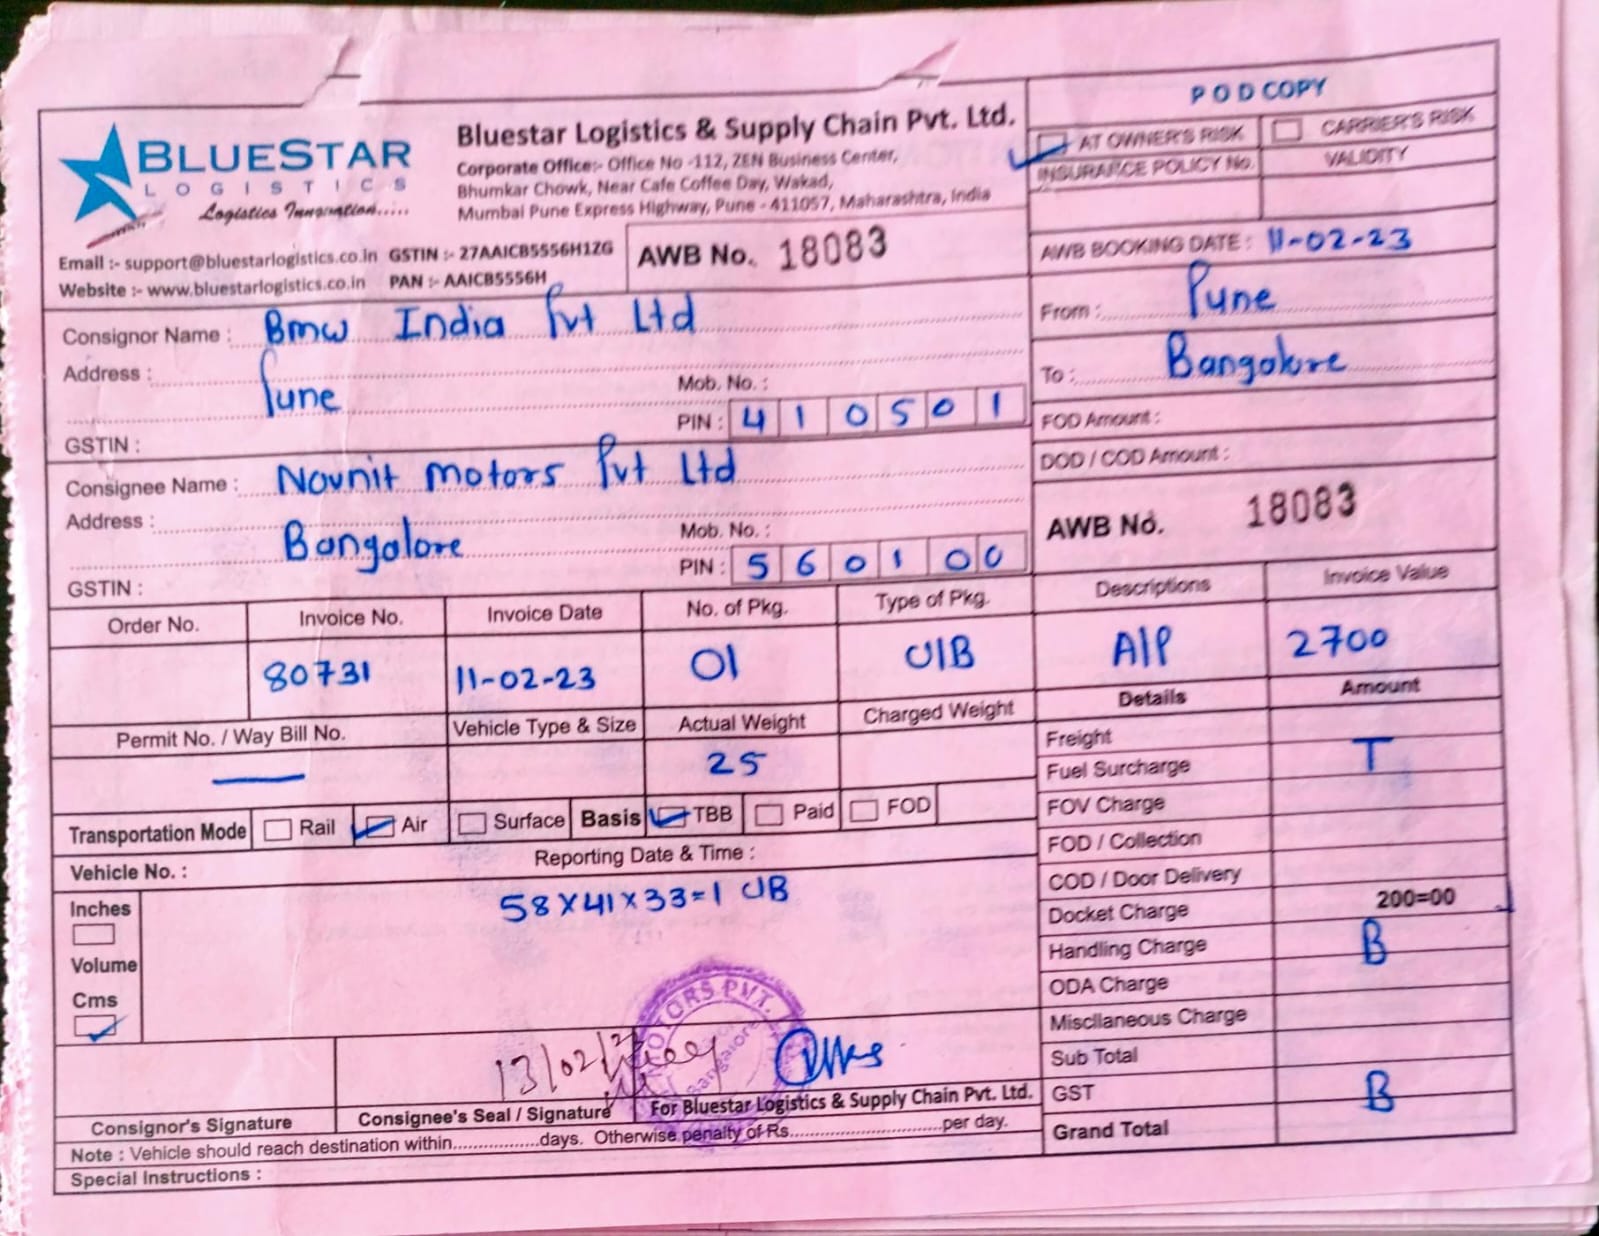 POD COPY
BLUESTAR
LOGISTICS
Logistics Innovation.....
Bluestar Logistics & Supply Chain Pvt. Ltd.
Corporate Office:- Office No -112, ZEN Business Center,
Bhumkar Chowk, Near Cafe Coffee Day, Wakad,
Mumbai Pune Express Highway, Pune - 411057, Maharashtra, India
AT OWNER'S RISK CARRIER'S RISK
INSURANCE POLICY No. VALIDITY
Email :- support@bluestarlogistics.co.in GSTIN :- 27AAICB5556H1ZG
Website :- www.bluestarlogistics.co.in PAN :- AAICB5556H
AWB No. 18083
AWB BOOKING DATE : 11-02-23
From : Pune
To : Bangalore
FOD Amount :
DOD / COD Amount :
AWB No. 18083
Consignor Name : Bmw India Pvt Ltd
Address : Pune
Mob. No. :
PIN : 410501
GSTIN :
Consignee Name : Navnit Motors Pvt Ltd
Address : Bangalore
Mob. No. :
PIN : 560100
GSTIN :
Order No. Invoice No. Invoice Date No. of Pkg. Type of Pkg. Descriptions Invoice Value
80731 11-02-23 01 C/B A/P 2700
Permit No. / Way Bill No. Vehicle Type & Size Actual Weight Charged Weight Details Amount
— 25
Transportation Mode Rail Air Surface Basis TBB Paid FOD
Vehicle No. : Reporting Date & Time :
Inches
Volume
Cms
58x41x33=1 C/B
Freight
Fuel Surcharge T
FOV Charge
FOD / Collection
COD / Door Delivery
Docket Charge 200=00
Handling Charge B
ODA Charge
Miscllaneous Charge
Sub Total
GST B
Grand Total
MOTORS PVT.
Bangalore
13/02/
Consignor's Signature Consignee's Seal / Signature For Bluestar Logistics & Supply Chain Pvt. Ltd.
Note : Vehicle should reach destination within.................days. Otherwise penalty of Rs...............................per day.
Special Instructions :